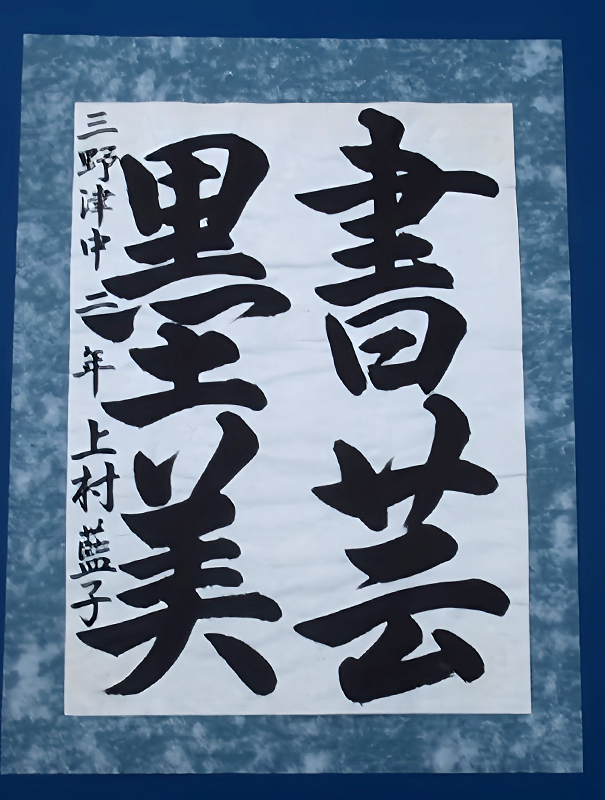 書芸
墨美
三野津中二年上村藍子